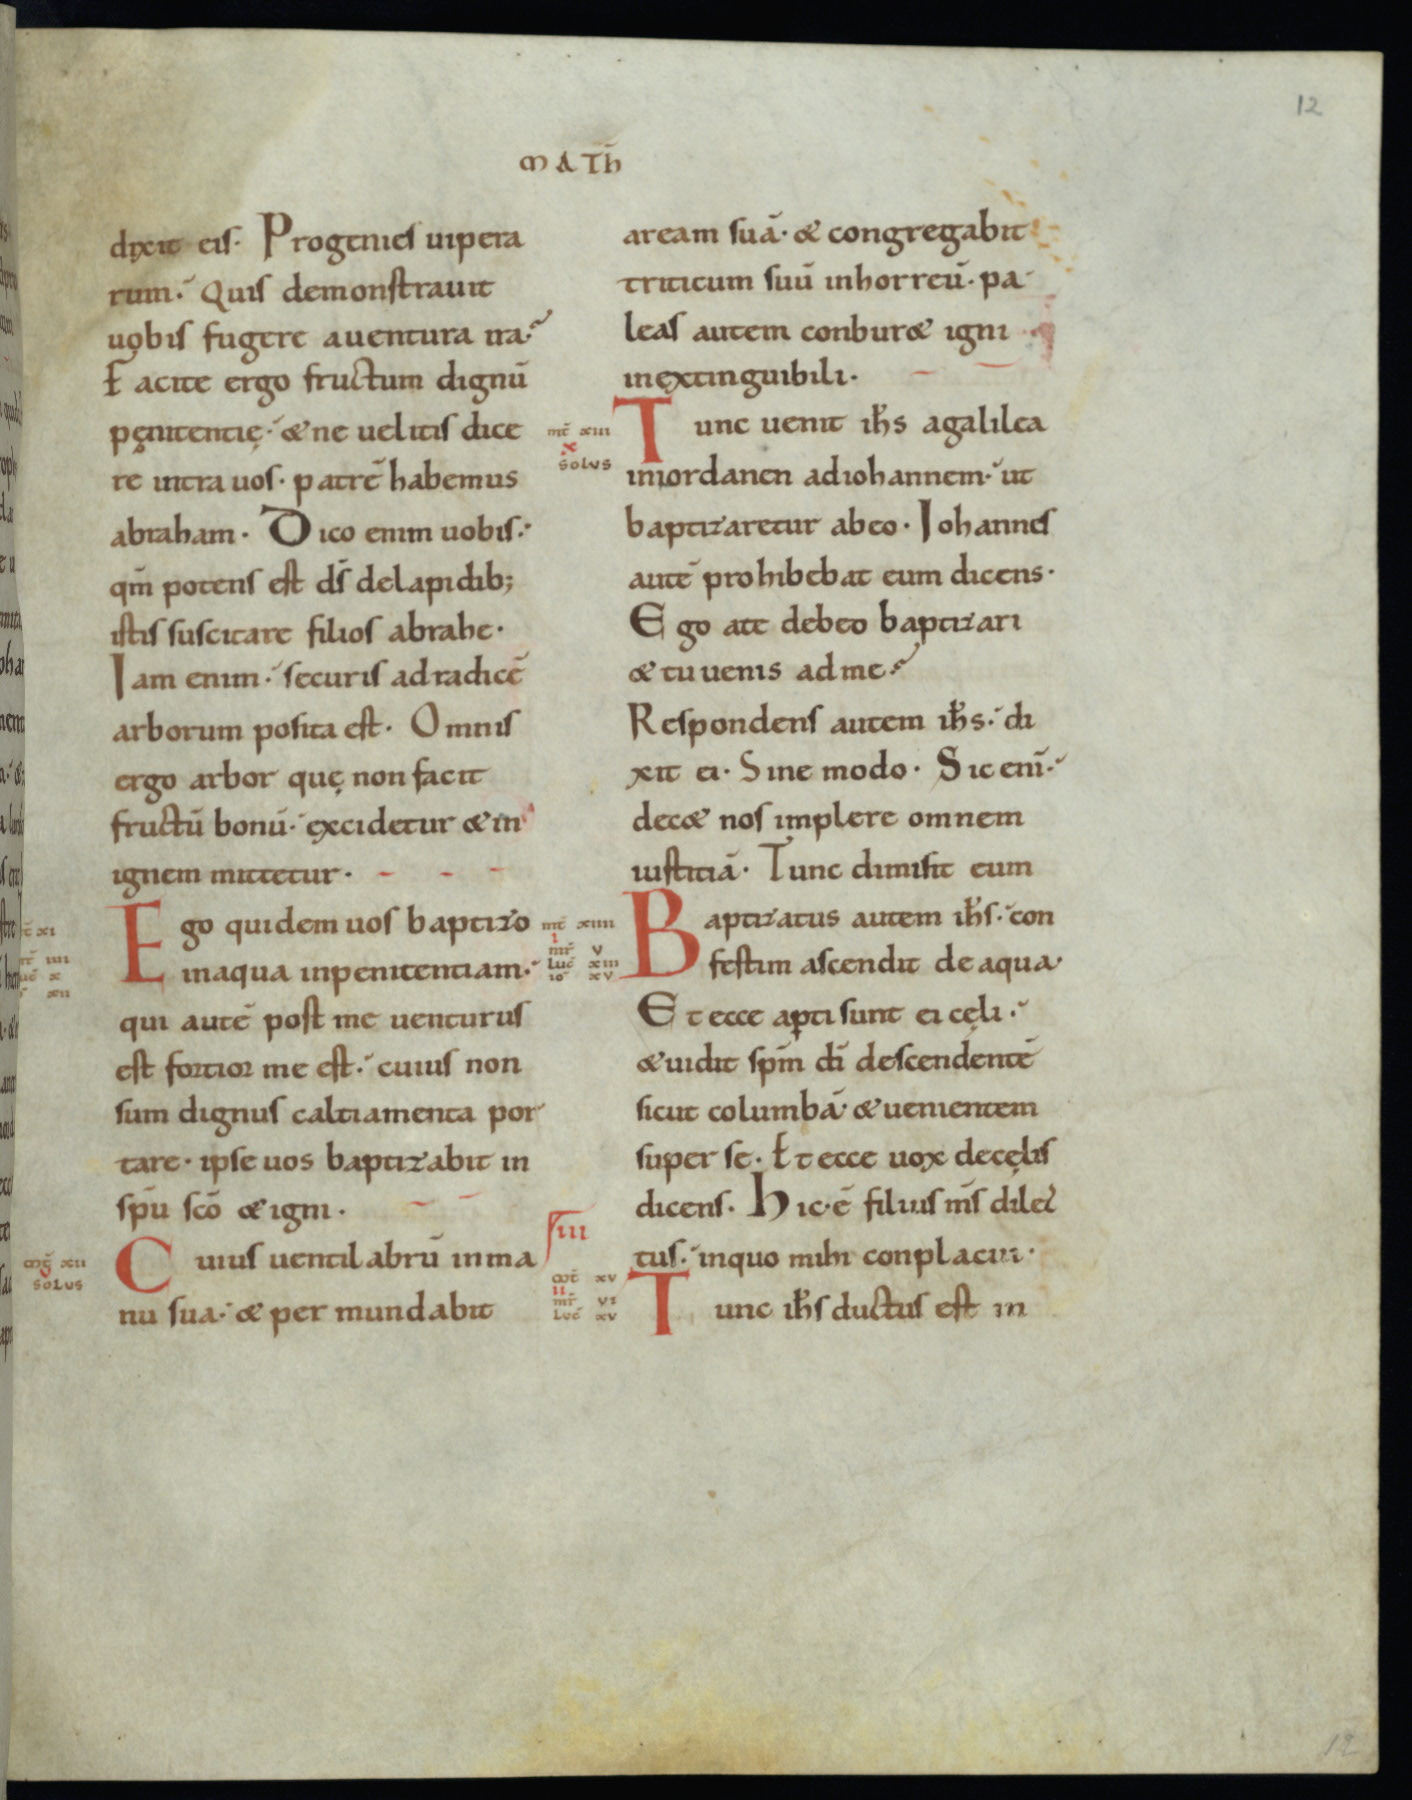 12
MATH̄
dixit eis. Progenies uipera
rum. Quis demonstrauit
uobis fugere auentura ira.
Facite ergo fructum dignū
pęnitentię. & ne uelitis dice
re intra uos. patrē habemus
abraham. Dico enim uobis.
qm̄ potens est ds̄ delapidib;
istis suscitare filios abrahe.
Iam enim. securis adradicē
arborum posita est. Omnis
ergo arbor quę non facit
fructū bonū. excidetur & in
ignem mittetur.
Ego quidem uos baptizo
inaqua inpenitentiam.
qui autē post me uenturus
est fortior me est. cuius non
sum dignus caltiamenta por
tare. ipse uos baptizabit in
sp̄u sc̄o & igni.
mt̄ xii
v
solus
Cuius uentilabrū inma
nu sua. & per mundabit
aream suā. & congregabit
triticum suū inhorreū. pa
leas autem conbur& igni
inextinguibili.
mt̄ xiii
x
solus
Tunc uenit ih̄s agalilea
iniordanen adiohannem. ut
baptizaretur abeo. Iohannes
autē prohibebat eum dicens.
Ego ate debeo baptizari
& tu uenis ad me.
Respondens autem ih̄s. di
xit ei. Sine modo. Sic eni̅.
dec& nos implere omnem
iustitiā. Tunc dimisit eum
mt̄ xiiii
i
mr̄ v
luc̄ xiii
io xv
Baptizatus autem ih̄s. con
festim ascendit de aqua.
Et ecce apti sunt ei cęli.
& uidit sp̄m di̅ descendentē
sicut columbā. & uenientem
super se. Et ecce uox decęlis
dicens. Hic.ē filius ms̄ dilec
tus. inquo mihi conplacui.
iii
mt̄ xv
ii
mr̄ vi
luc̄ xv
Tunc ih̄s ductus est in
12